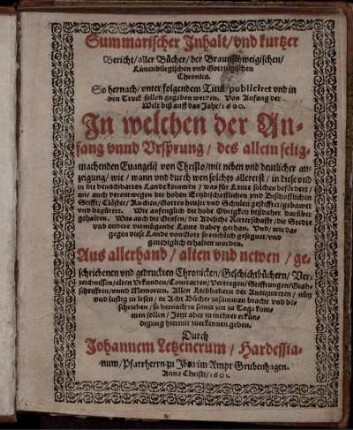 Summarischer Inhalt/vnd kurtzer
Bericht/aller Bücher/der Braunschweigischen/
Lünenbürgischen vnd Göttingischen
Chronica.
So hernach/vnter folgendem Titul/publiciret vnd in
den Truck sollen gegeben werden. Von Anfang der
Welt biß auff das Jahr/1600.
In welchen der An-
fang vnnd Vrsprung/des allein selig-
machenden Euangelij von Christo/mit neben vnd deutlicher an-
zeigung/wie/wann vnd durch wen solches allererst/in diese vnd
in die benachbarten Lande kommen/was für Leute solches befördert/
wie auch von wegen die hohen Ertzbischofflichen vnd Bischofflichen
Stifft/Clöster/Kirchen/Gottes heuser vnd Schulen gestifftet/gebawet
vnd begüteret. Wie anfenglich die hohe Obrigkeit bißhaher darüber
gehalten. Was auch die Grafen/die Adeliche Ritterschafft/die Stedte
vnd andere vermügende Leute dabey gethan. Vnd/wie da-
gegen diese Lande von Gott so reichlich gesegnet/vnd
gnediglich erhalten worden.
Aus allerhand/alten vnd newen/ge-
schriebenen vnd gedruckten Chronicken/Geschichtbüchern/Ver-
zeichnussen/alten Vrkunden/Contracten/Vertregen/Stifftungen/Grab-
schrifften/vnnd Memorien. Allen Liebhabern der Antiquiteten/nütz
vnd lustig zu lesen/in Acht Bücher zusammen bracht vnd be-
schrieben/so hernach in kurtzem zu Tage kom-
men sollen/Jetzt aber in mehrer erkün-
digung hiermit zuerkennen geben.
Durch
Johannem Letznerum/Hardessia-
num/Pfarrherrn zu Jber im Ampt Grubenhagen.
Anno Christi/1601.